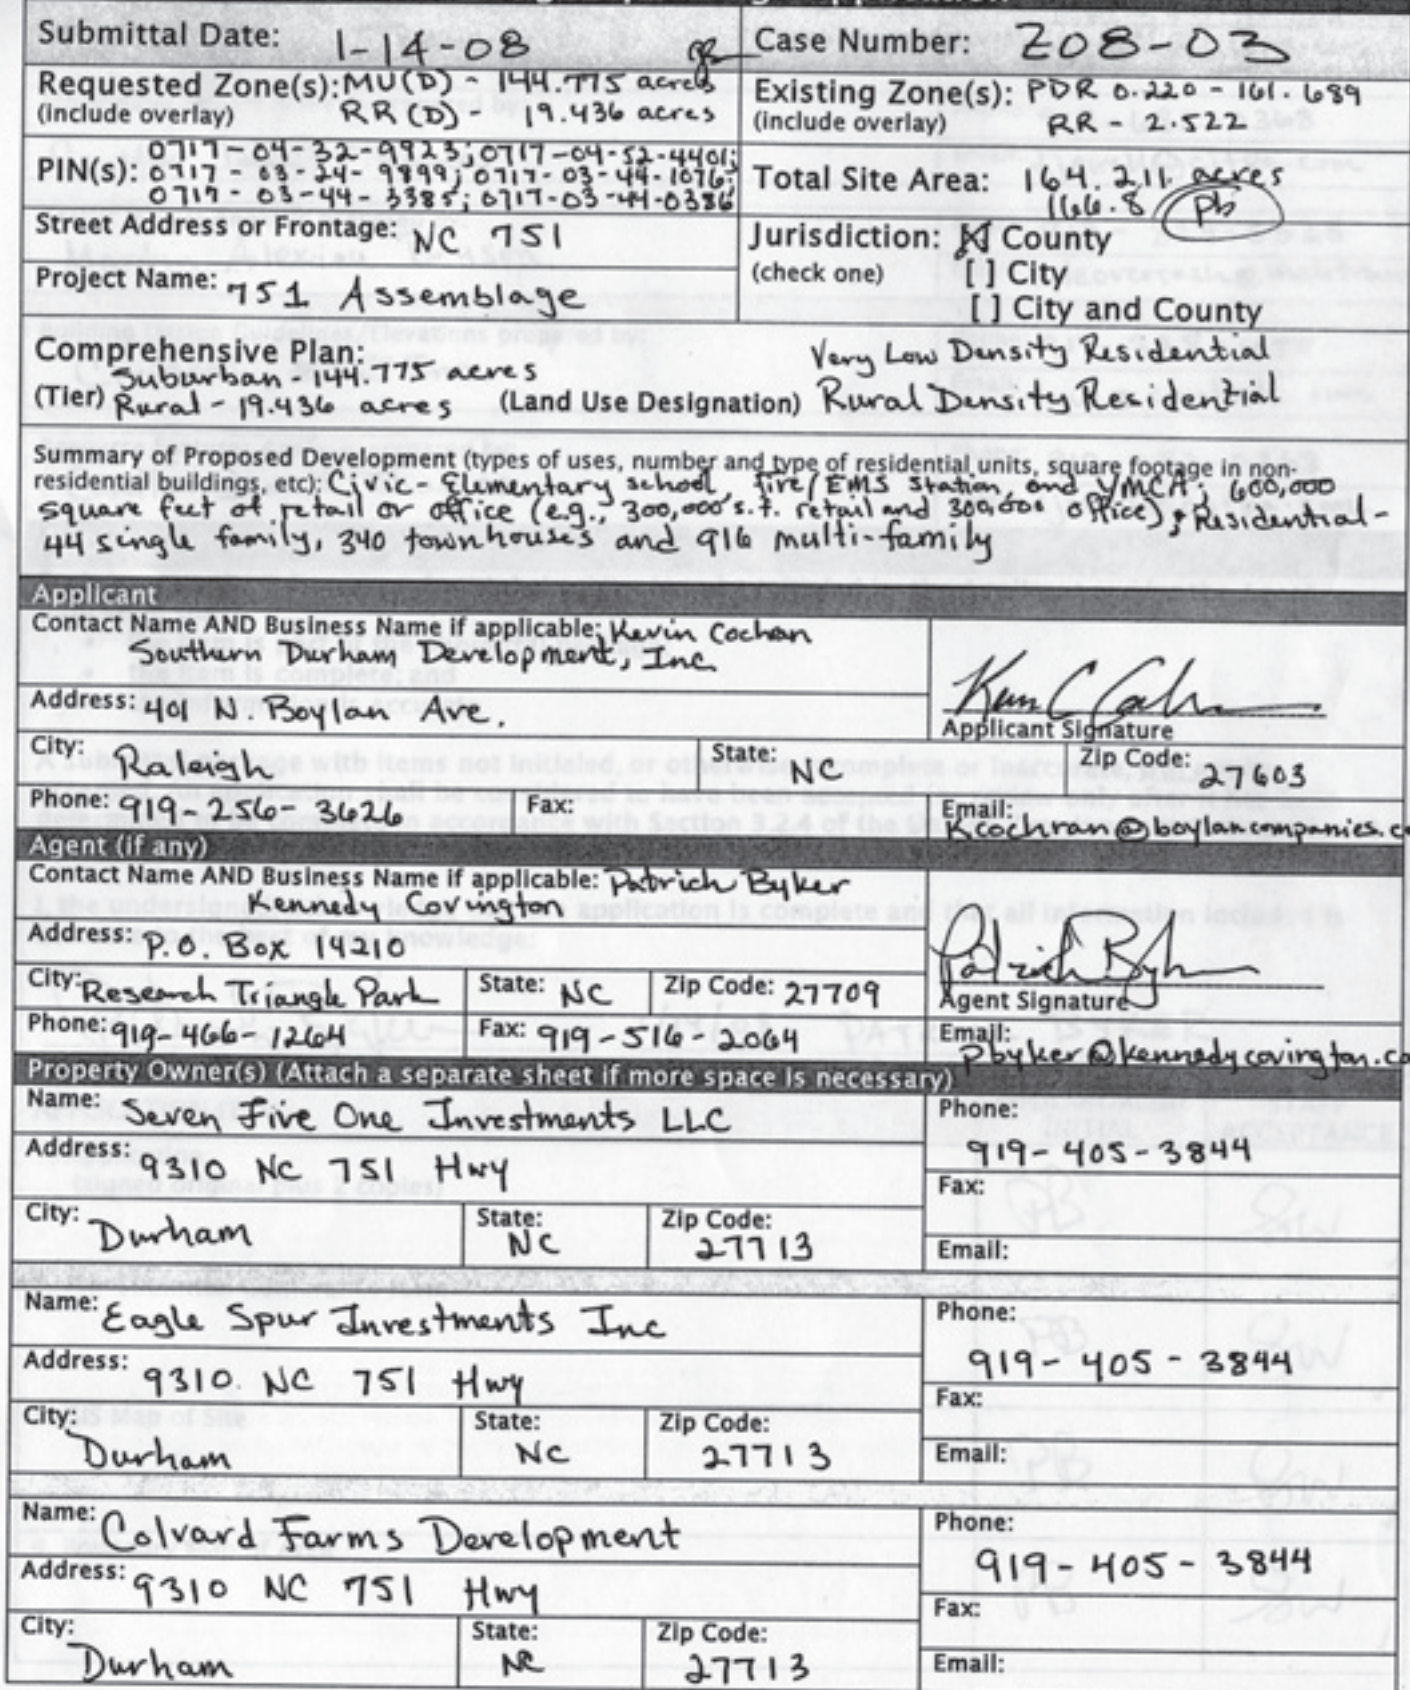 Submittal Date: 1-14-08
Case Number: Z08-03
Requested Zone(s): MU(D) - 144.775 acres
(include overlay) RR (D) - 19.436 acres
Existing Zone(s): PDR 0.220 - 161.689
(include overlay) RR - 2.522
PIN(s): 0717-04-32-9923; 0717-04-52-4401;
0717-03-24-9899; 0717-03-44-1076;
0717-03-44-3385; 0717-03-44-0386
Total Site Area: 164.211 acres
166.8 pb
Street Address or Frontage: NC 751
Jurisdiction: [X] County
(check one) [ ] City
[ ] City and County
Project Name: 751 Assemblage
Comprehensive Plan:
Suburban - 144.775 acres
(Tier) Rural - 19.436 acres
Very Low Density Residential
(Land Use Designation) Rural Density Residential
Summary of Proposed Development (types of uses, number and type of residential units, square footage in non-
residential buildings, etc): Civic - Elementary school, fire/EMS station, and YMCA; 600,000
square feet of retail or office (e.g., 300,000 s.f. retail and 300,000 office); Residential -
44 single family, 340 townhouses and 916 multi-family
Applicant
Contact Name AND Business Name if applicable: Kevin Cochan
Southern Durham Development, Inc
Address: 401 N. Boylan Ave.
Applicant Signature
City: Raleigh
State: NC
Zip Code: 27603
Phone: 919-256-3626
Fax:
Email: Kcochran@boylancompanies.co
Agent (if any)
Contact Name AND Business Name if applicable: Patrich Byker
Kennedy Covington
Address: P.O. Box 14210
City: Research Triangle Park
State: NC
Zip Code: 27709
Agent Signature
Phone: 919-466-1264
Fax: 919-516-2064
Email: pbyker@kennedycovington.co
Property Owner(s) (Attach a separate sheet if more space is necessary)
Name: Seven Five One Investments LLC
Phone: 919-405-3844
Address: 9310 NC 751 Hwy
Fax:
City: Durham
State: NC
Zip Code: 27713
Email:
Name: Eagle Spur Investments Inc
Phone: 919-405-3844
Address: 9310 NC 751 Hwy
Fax:
City: Durham
State: NC
Zip Code: 27713
Email:
Name: Colvard Farms Development
Phone: 919-405-3844
Address: 9310 NC 751 Hwy
Fax:
City: Durham
State: NC
Zip Code: 27713
Email: